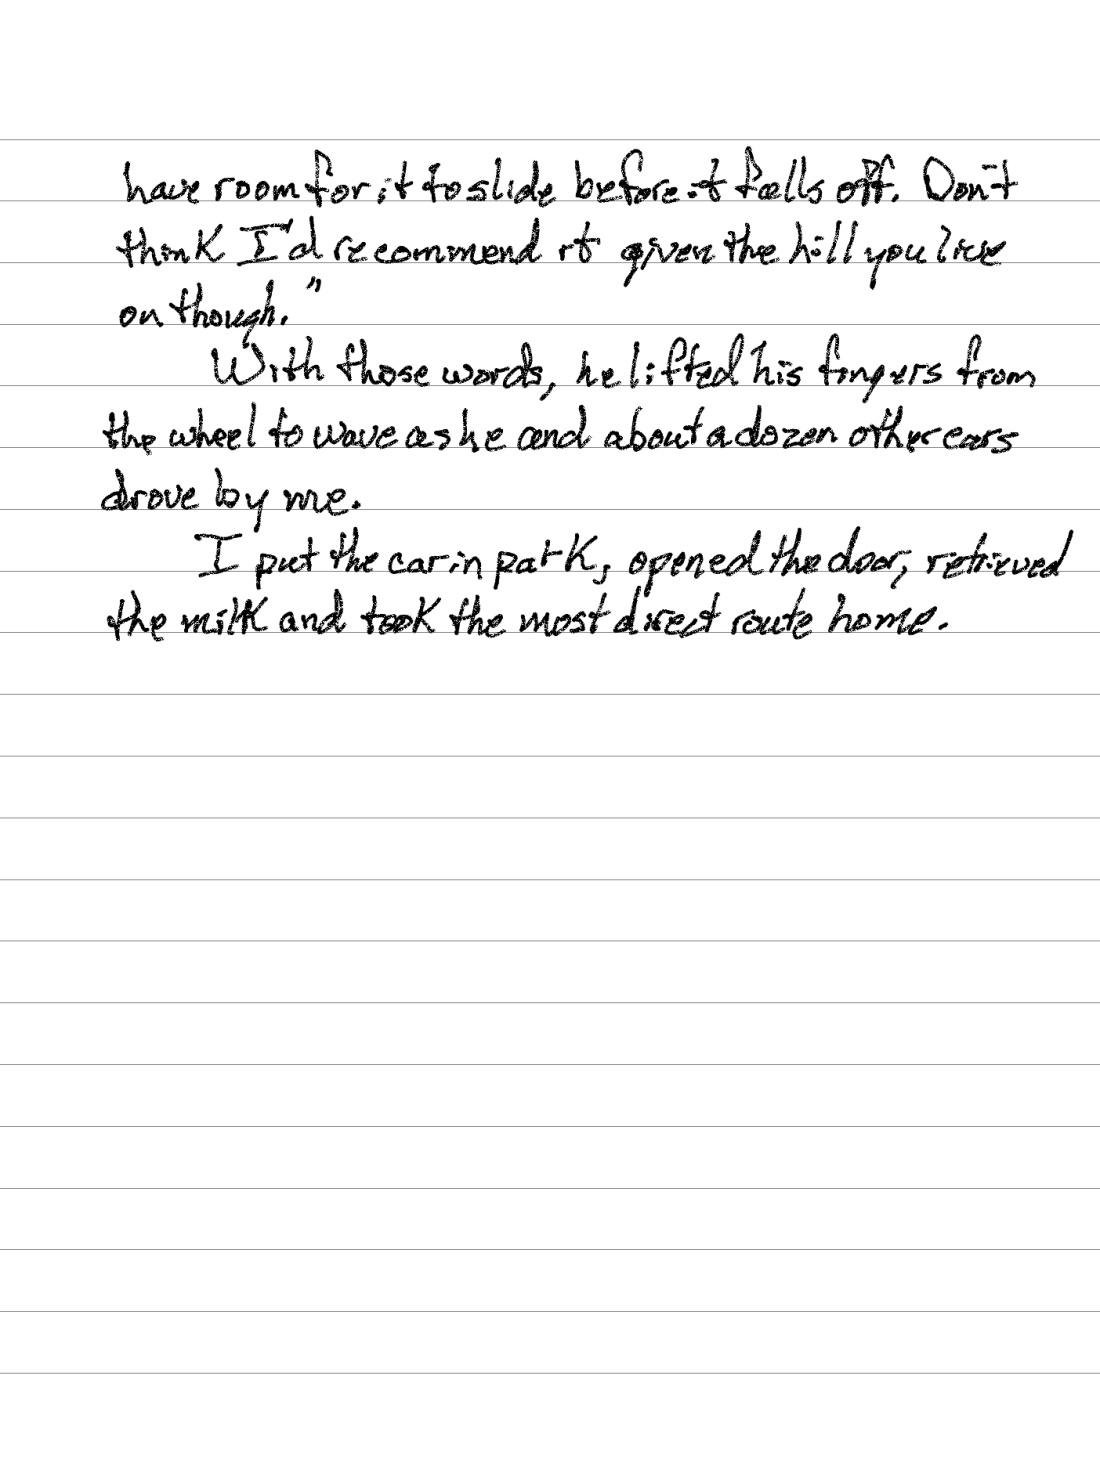 have room for it to slide before it falls off. Don't
think I'd recommend it given the hill you live
on though."
With those words, he lifted his fingers from
the wheel to wave as he and about a dozen other cars
drove by me.
I put the car in park, opened the door, retrieved
the milk and took the most direct route home.